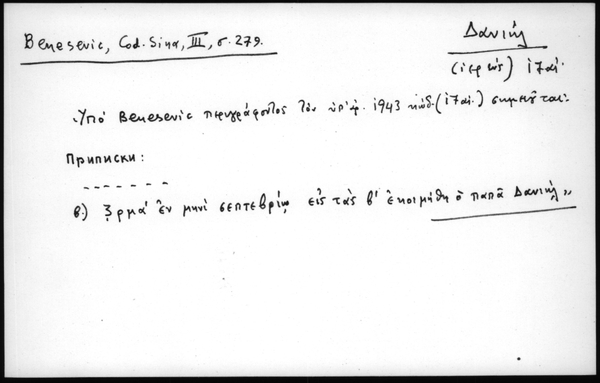 Benesevic, Cod. Sina, III, σ. 279.
Δανιήλ
(ἱερεύς) 17αἰ.
Ὑπό Benesevic περιγράφοντος τόν ὑπ' ἀρ. 1943 κώδ. (17αἰ.) σημειοῦται:
Приписки:
-------
в.) ͵ζρμα' ἐν μηνί σεπτεβρίῳ εἰς τὰς β' ἐκοιμήθη ὁ παπᾶ Δανιήλ „